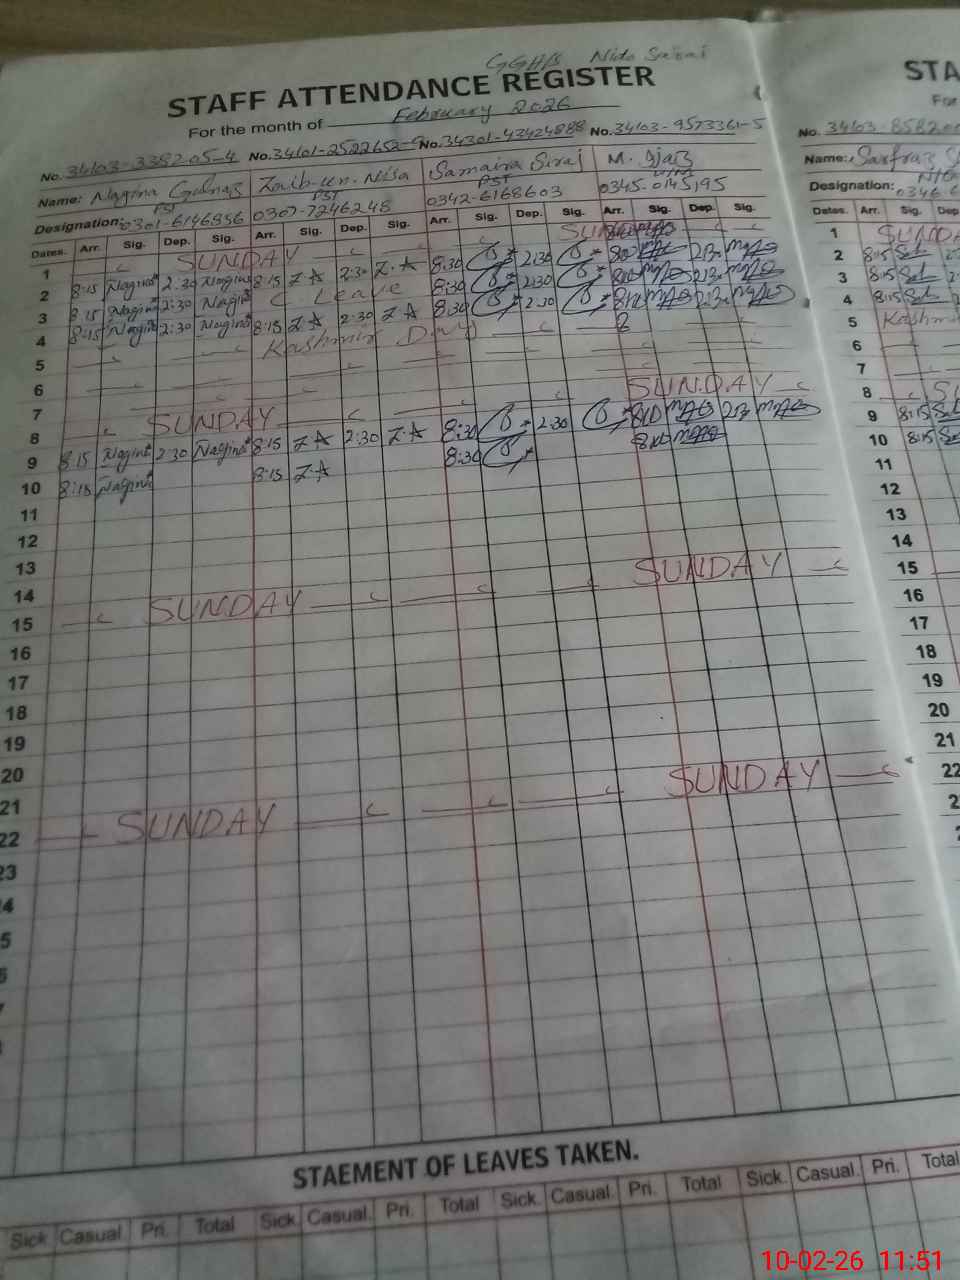 GGHS Nido Sarai
STAFF ATTENDANCE REGISTER
For the month of February 2026
No. 34103-3382205-4 No. 34101-2522652- No. 34301-43424888 No. 34103-9573361-5
Name: Nagina Gulnaz Zaib-un-Nisa Samaira Siraj M. Ijaz
Designation: PST PST PST
0301-6146956 0307-7246248 0342-6168603 0345-0145195
Dates. Arr. Sig. Dep. Sig. Arr. Sig. Dep. Sig. Arr. Sig. Dep. Sig. Arr. Sig. Dep. Sig.
1 SUNDAY SUNDAY
2 8:15 Nagina 2:30 Nagina 8:15 Z.A 2:30 Z.A 8:30 2:30
3 8:15 Nagina 2:30 Nagina Leave 8:30 2:30
4 8:15 Nagina 2:30 Nagina 8:15 Z.A 2:30 Z.A 8:30 2:30
5 Kashmir Day
6
7
8 SUNDAY SUNDAY
9 8:15 Nagina 2:30 Nagina 8:15 Z.A 2:30 Z.A 8:30 2:30
10 8:15 Nagina 8:15 Z.A 8:30
11
12
13
14
15 SUNDAY SUNDAY
16
17
18
19
20
21
22 SUNDAY SUNDAY
23
4
5
STAEMENT OF LEAVES TAKEN.
Sick Casual. Pri. Total Sick. Casual. Pri. Total Sick. Casual. Pri. Total Sick. Casual. Pri. Total
STA
For
No. 34103-85820
Name: Sarfraz
Designation:
0346-6
Dates. Arr. Sig. Dep.
1 SUNDA
2 8:15
3 8:15
4 8:15
5 Kashmi
6
7
8 SU
9 8:15
10 8:15
11
12
13
14
15
16
17
18
19
20
21
22
10-02-26 11:51